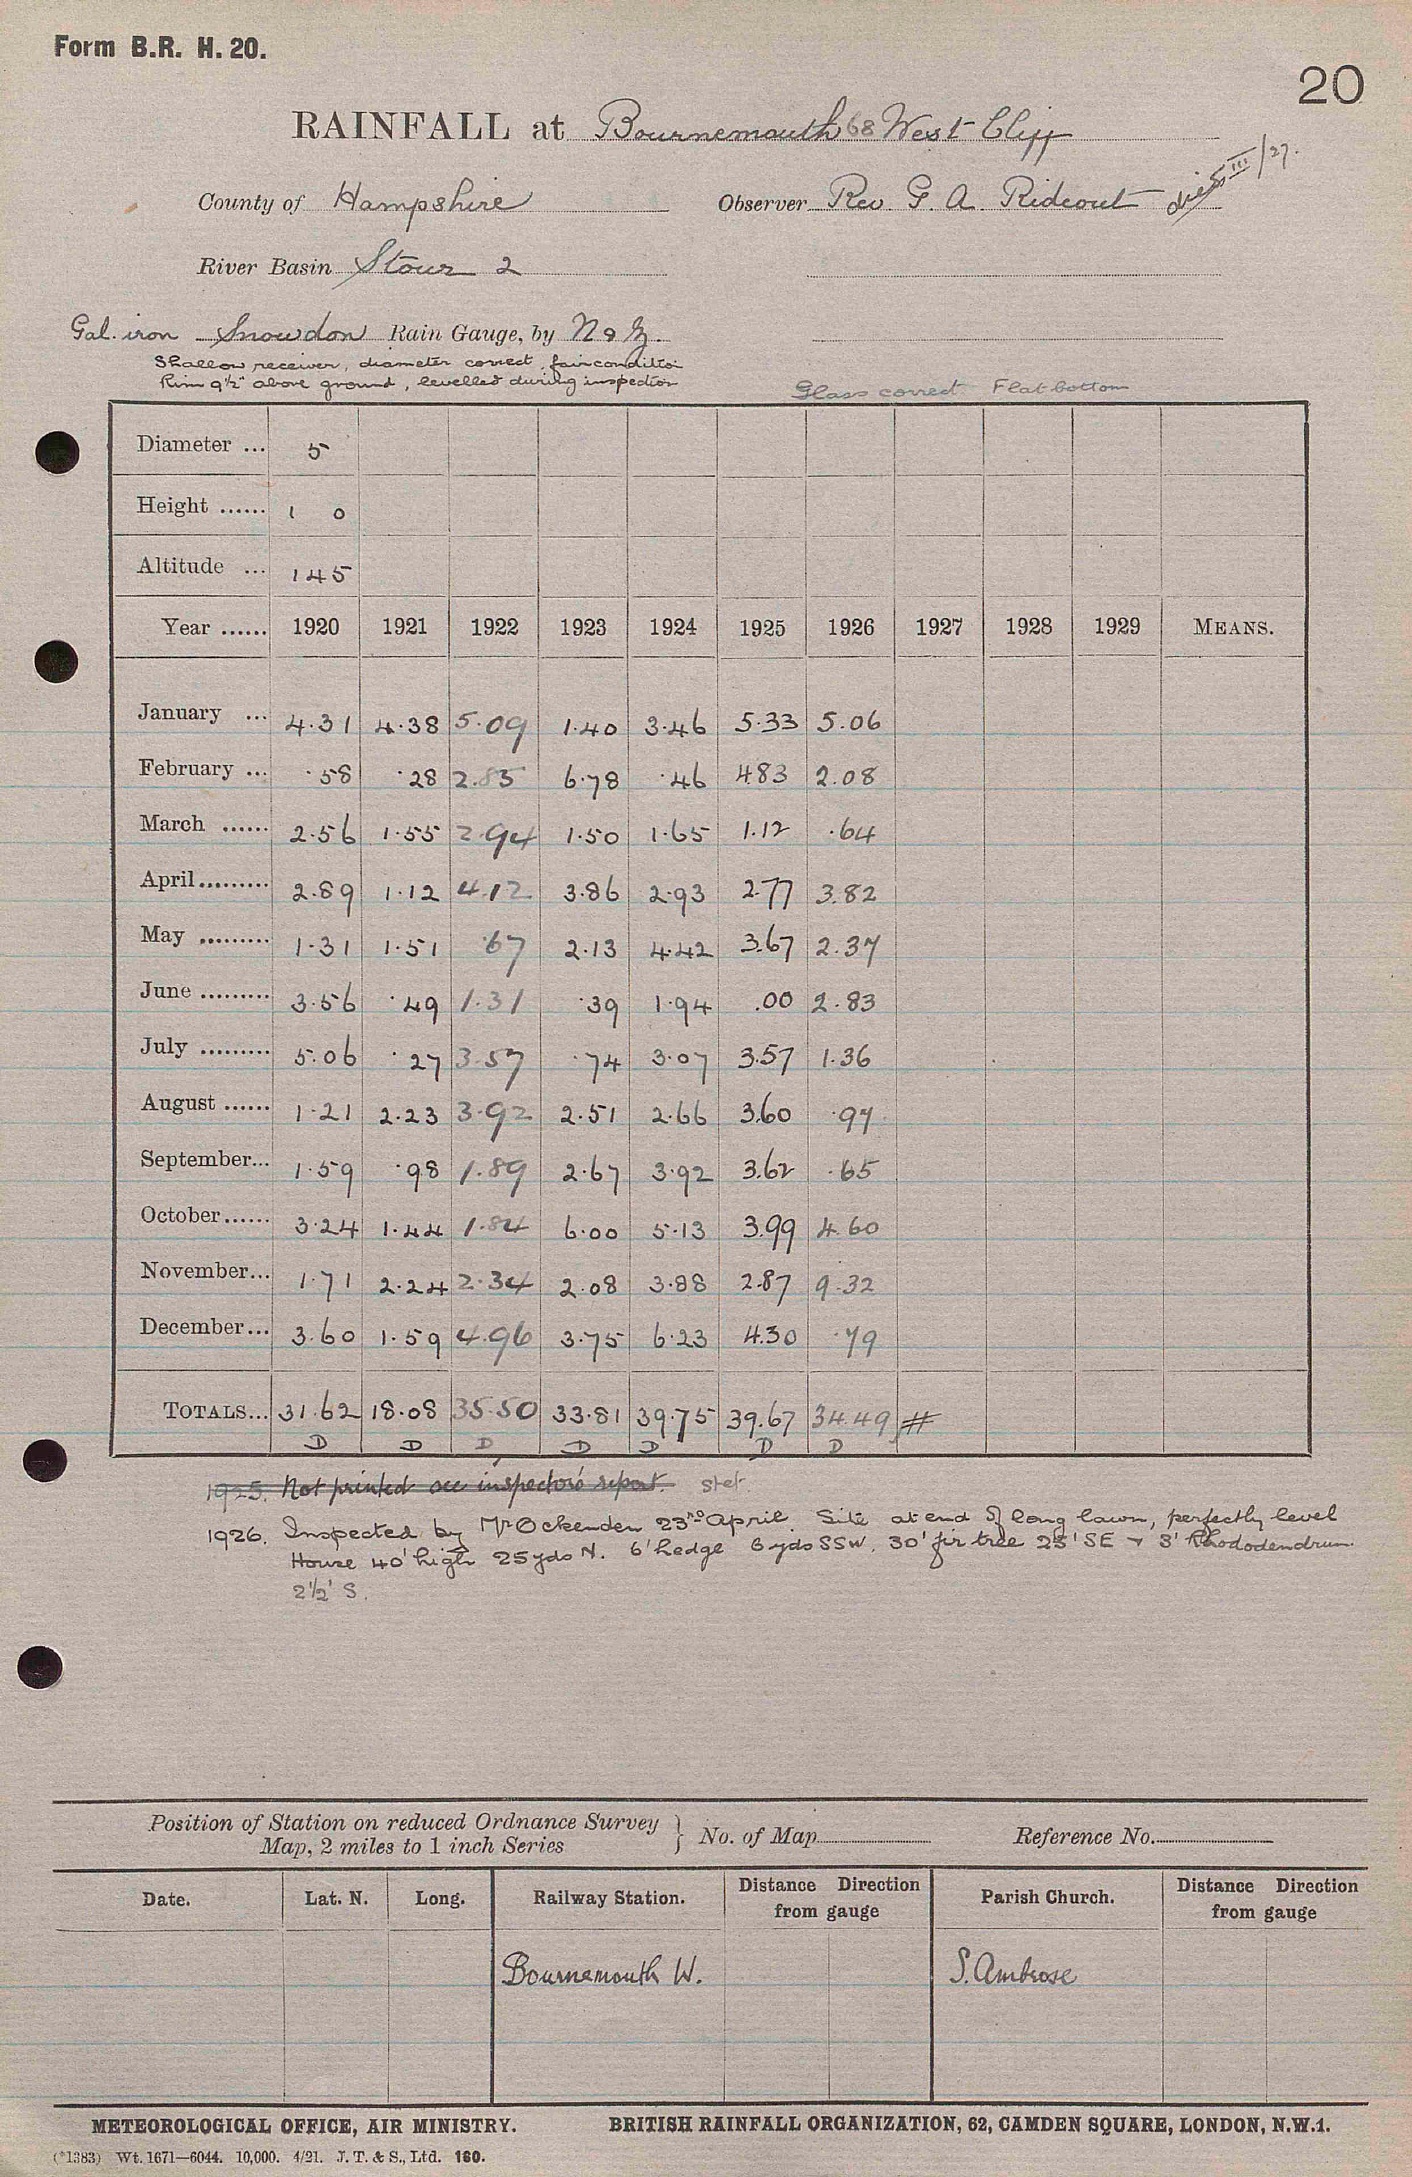 Form B.R. H. 20.
20
RAINFALL at Bournemouth 68 West Cliff
County of Hampshire Observer Rev. G. A. Rideout died III/27.
River Basin Stour 2
Gal. iron Snowdon Rain Gauge, by N & Z.
Shallow receiver, diameter correct, fair condition
Rim 9½" above ground, levelled during inspection
Glass correct Flat bottom
Diameter ... 5
Height ...... 1 0
Altitude ... 145
Year ...... 1920 1921 1922 1923 1924 1925 1926 1927 1928 1929 MEANS.
January ... 4.31 4.38 5.09 1.40 3.46 5.33 5.06
February ... .58 .28 2.85 6.78 .46 4.83 2.08
March ...... 2.56 1.55 2.94 1.50 1.65 1.12 .64
April......... 2.89 1.12 4.12 3.86 2.93 2.77 3.82
May ......... 1.31 1.51 .67 2.13 4.42 3.67 2.37
June ......... 3.56 .49 1.31 .39 1.94 .00 2.83
July ......... 5.06 .27 3.57 .74 3.07 3.57 1.36
August ...... 1.21 2.23 3.92 2.51 2.66 3.60 .97
September... 1.59 .98 1.89 2.67 3.92 3.62 .65
October...... 3.24 1.44 1.84 6.00 5.13 3.99 4.60
November... 1.71 2.24 2.34 2.08 3.88 2.87 9.32
December... 3.60 1.59 4.96 3.75 6.23 4.30 .79
TOTALS... 31.62 18.08 35.50 33.81 39.75 39.67 34.49 #
D D D D D D D
1925. Not printed see inspector's report. stet
1926. Inspected by Mr Ockenden 23rd April. Site at end of long lawn, perfectly level
House 40' high 25yds N. 6' hedge 6yds SSW. 30' fir tree 25' SE + 3' Rhododendrum
2½' S.
Position of Station on reduced Ordnance Survey
Map, 2 miles to 1 inch Series } No. of Map Reference No.
Date. Lat. N. Long. Railway Station. Distance Direction from gauge Parish Church. Distance Direction from gauge
Bournemouth W. S. Ambrose
METEOROLOGICAL OFFICE, AIR MINISTRY. BRITISH RAINFALL ORGANIZATION, 62, CAMDEN SQUARE, LONDON, N.W.1.
(*1383) Wt. 1671—6044. 10,000. 4/21. J. T. & S., Ltd. 160.